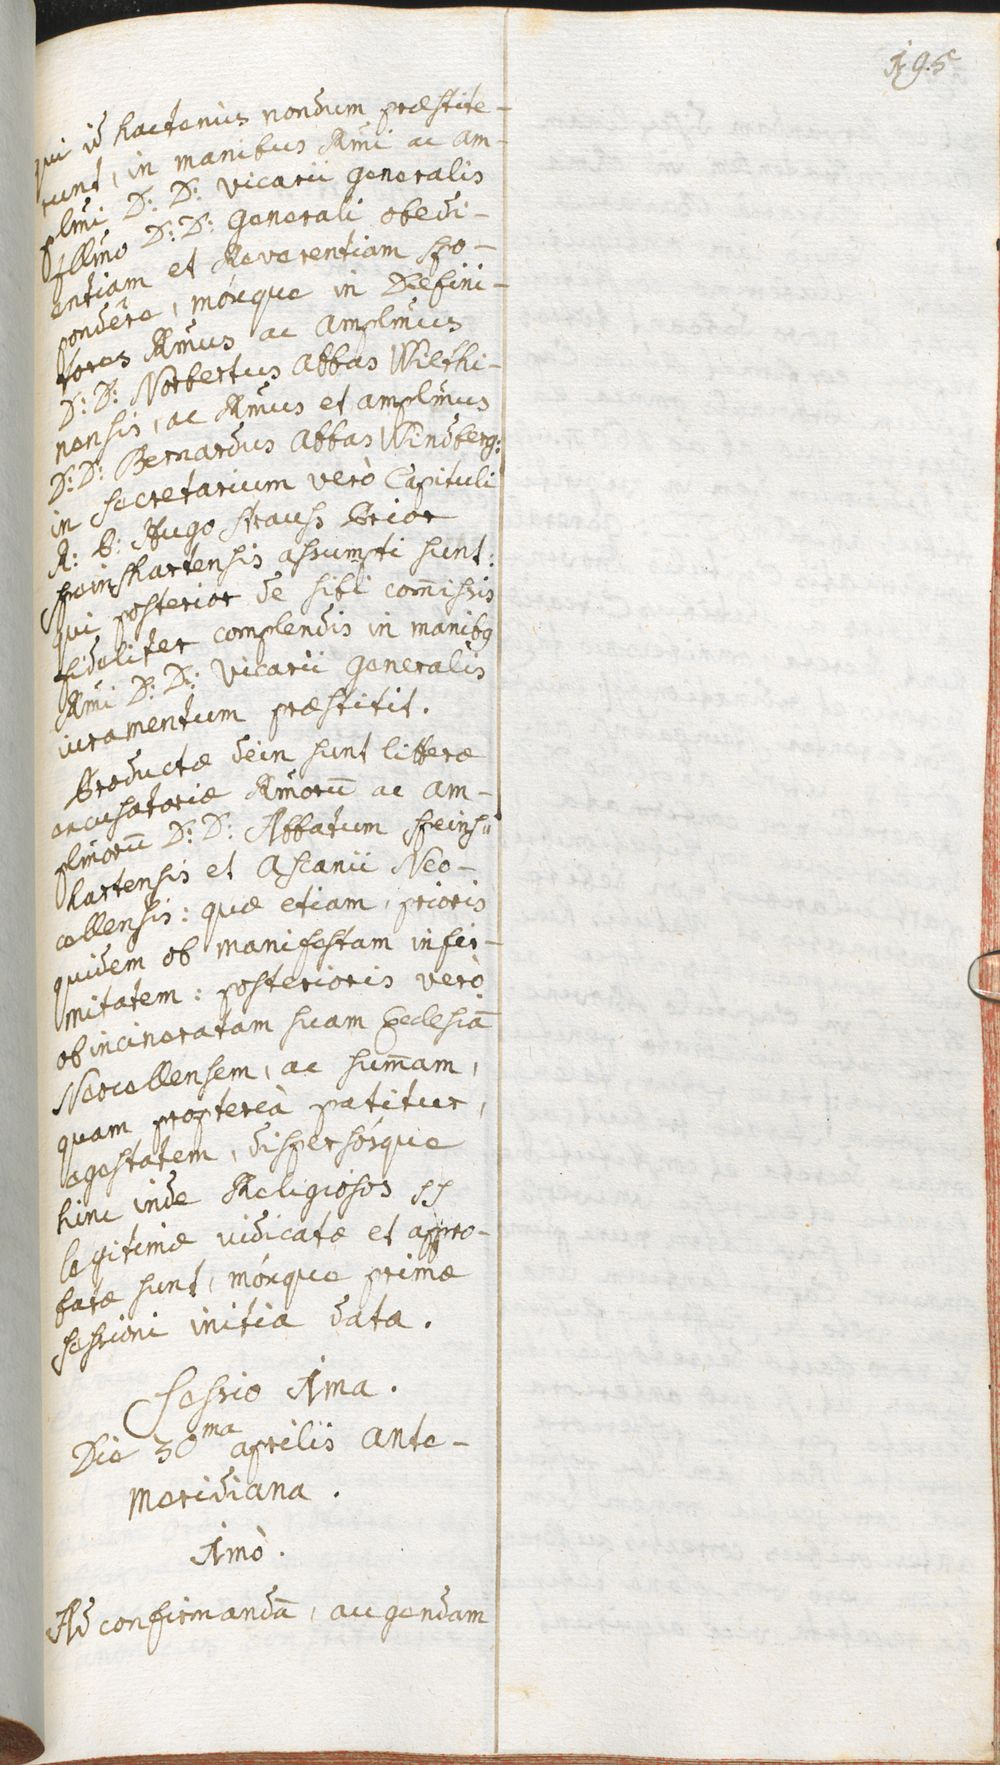 195
qui id hactenùs nondum præstite-
runt, in manibus Rmi ac am-
plmi D: D: Vicarii generalis
Illmo D: D: Generali obedi-
entiam et Reverentiam spo-
pondêre, móxque in Defini-
tores Rmus ac amplmus
D: D: Norbertus Abbas Wilthi-
nensis, ac Rmus et amplmus
D: D: Bernardus Abbas Windberg:
in secretarium verò Capituli
R: P: Hugo Strauss Prior
Speinshartensis assumpti sunt:
qui posterior de sibi com̄issis
fideliter complendis in manibq
Rmi D: D: Vicarii generalis
iuramentum præstitit.
Productæ dein sunt litteræ
excusatoriæ Rmorū ac am-
plmorū D: D: Abbatum Speins-
hartensis et Ascanii Neo-
cellensis: quæ etiam, prioris
quidem ob manifestam infir-
mitatem: posterioris verò
ob incineratam suam Ecclesiā
Neocellensem, ac sum̄am,
quam proptereà patitur,
egestatem, dispersósque
hinc inde Religiosos ss
legitimæ vidicatæ et appro-
batæ sunt, móxque primæ
sessioni initia data.
Sessio 1ma.
Die 30ma aprilis ante-
meridiana.
1mò.
Ad confirmandā, augendam